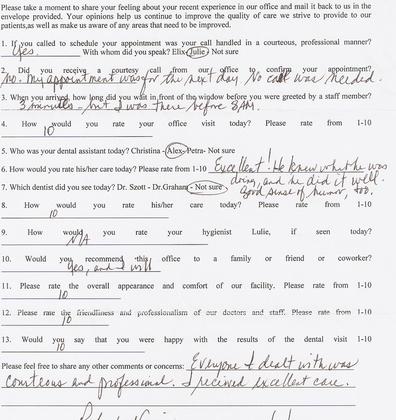 Please take a moment to share your feeling about your recent experience in our office and mail it back to us in the
envelope provided. Your opinions help us continue to improve the quality of care we strive to provide to our
patients,as well as make us aware of any areas that need to be improved.
1. If you called to schedule your appointment was your call handled in a courteous, professional manner?
yes. With whom did you speak? Elix Julie Not sure
2. Did you receive a courtesy call from our office to confirm your appointment?
no. My appointment was for the next day. No call was needed.
3. When you arrived, how long did you wait in front of the window before you were greeted by a staff member?
3 minutes - but I was there before 8AM.
4. How would you rate your office visit today? Please rate from 1-10
10
5. Who was your dental assistant today? Christina - Alex - Petra- Not sure
6. How would you rate his/her care today? Please rate from 1-10 Excellent! He knew what he was
doing, and he did it well.
7. Which dentist did you see today? Dr. Szott - Dr.Graham - Not sure Good sense of humor, too.
8. How would you rate his/her care today? Please rate from 1-10
10
9. How would you rate your hygienist Lulie, if seen today?
N/A
10. Would you recommend this office to a family or friend or coworker?
Yes, and I will
11. Please rate the overall appearance and comfort of our facility. Please rate from 1-10
10
12. Please rate the friendliness and professionalism of our doctors and staff. Please rate from 1-10
10
13. Would you say that you were happy with the results of the dental visit 1-10
10
Please feel free to share any other comments or concerns: Everyone I dealt with was
courteous and professional. I recived excellent care.